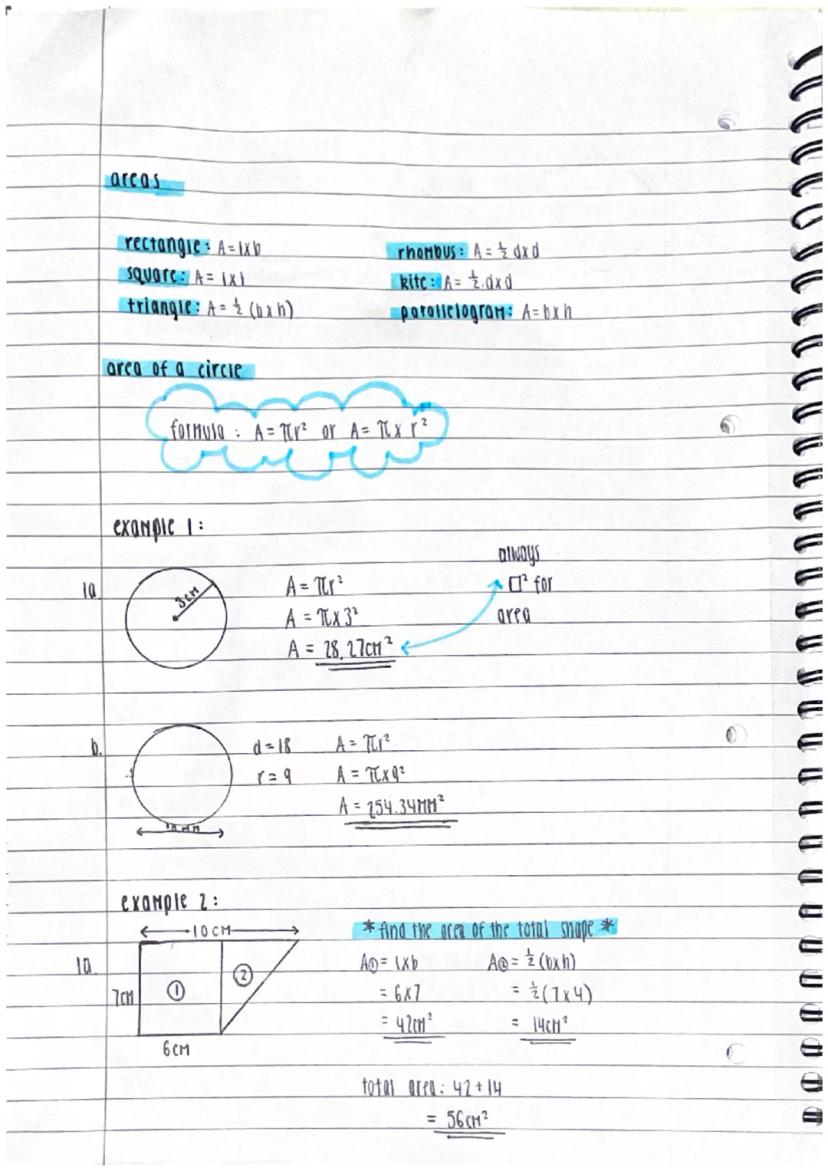 areas
rectangle: A=l×b
square: A= l×l
triangle: A= ½ (b×h)
rhombus: A= ½ d×d
kite: A= ½.d×d
parallelogram: A=b×h
area of a circle
formula : A=πr² or A=π× r²
example 1:
1a.
3cm
A = πr²
A = π×3²
A = 28,27cm²
always
□² for
area
b.
18mm
d=18
r=9
A = πr²
A = π×9²
A = 254.34mm²
example 2:
*find the area of the total shape*
1a.
10cm
7cm
① ②
6cm
A①= l×b
= 6×7
= 42cm²
A②= ½(b×h)
= ½(7×4)
= 14cm²
total area: 42+14
= 56cm²